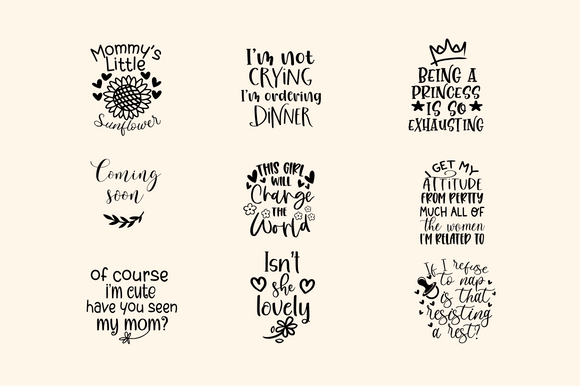 Mommy's
Little
Sunflower
I'm not
CRYING
I'm ordering
DINNER
BEING A
PRINCESS
IS SO
EXHAUSTING
Coming
soon
THIS GIRL
WILL
Change
THE
World
I GET MY
ATTITUDE
FROM PERTTY
MUCH ALL OF
the women
I'M RELATED TO
of course
i'm cute
have you seen
my mom?
Isn't
she
lovely
If I refuse
to nap
is that
resisting
a rest?